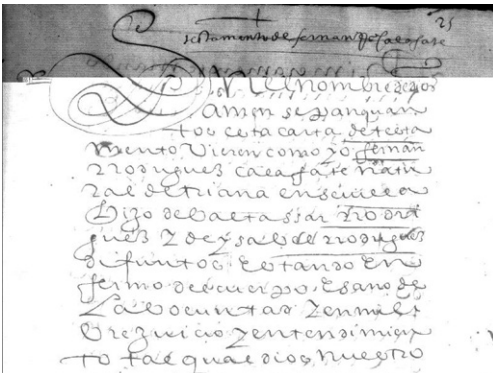 25
testamento de fernan Ro calafate
En el nombre de dios
amen sepan quan
tos esta carta de testa
mento vieren como yo fernan
rrodriguez calafate natu
ral de triana en sevilla
hijo de baltassar rrodri
guez y de ysabel rrodriguez
difuntos estando en
fermo del cuerpo e sano de
la boluntad y en mi li
bre juicio y entendimien
to tal qual dios nuestro